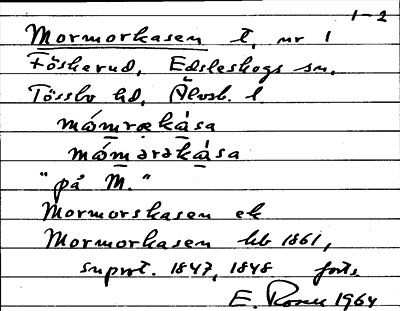 1-2
Mormorkasen t. nr 1
Föskerud, Edsleskogs sn.
Tössbo hd, Älvsb. l
mómrækása
mómarakása
"på M."
Mormorskasen ek
Mormorkasen hb 1861,
suprot. 1847, 1848 forts.
E. Rosell 1964